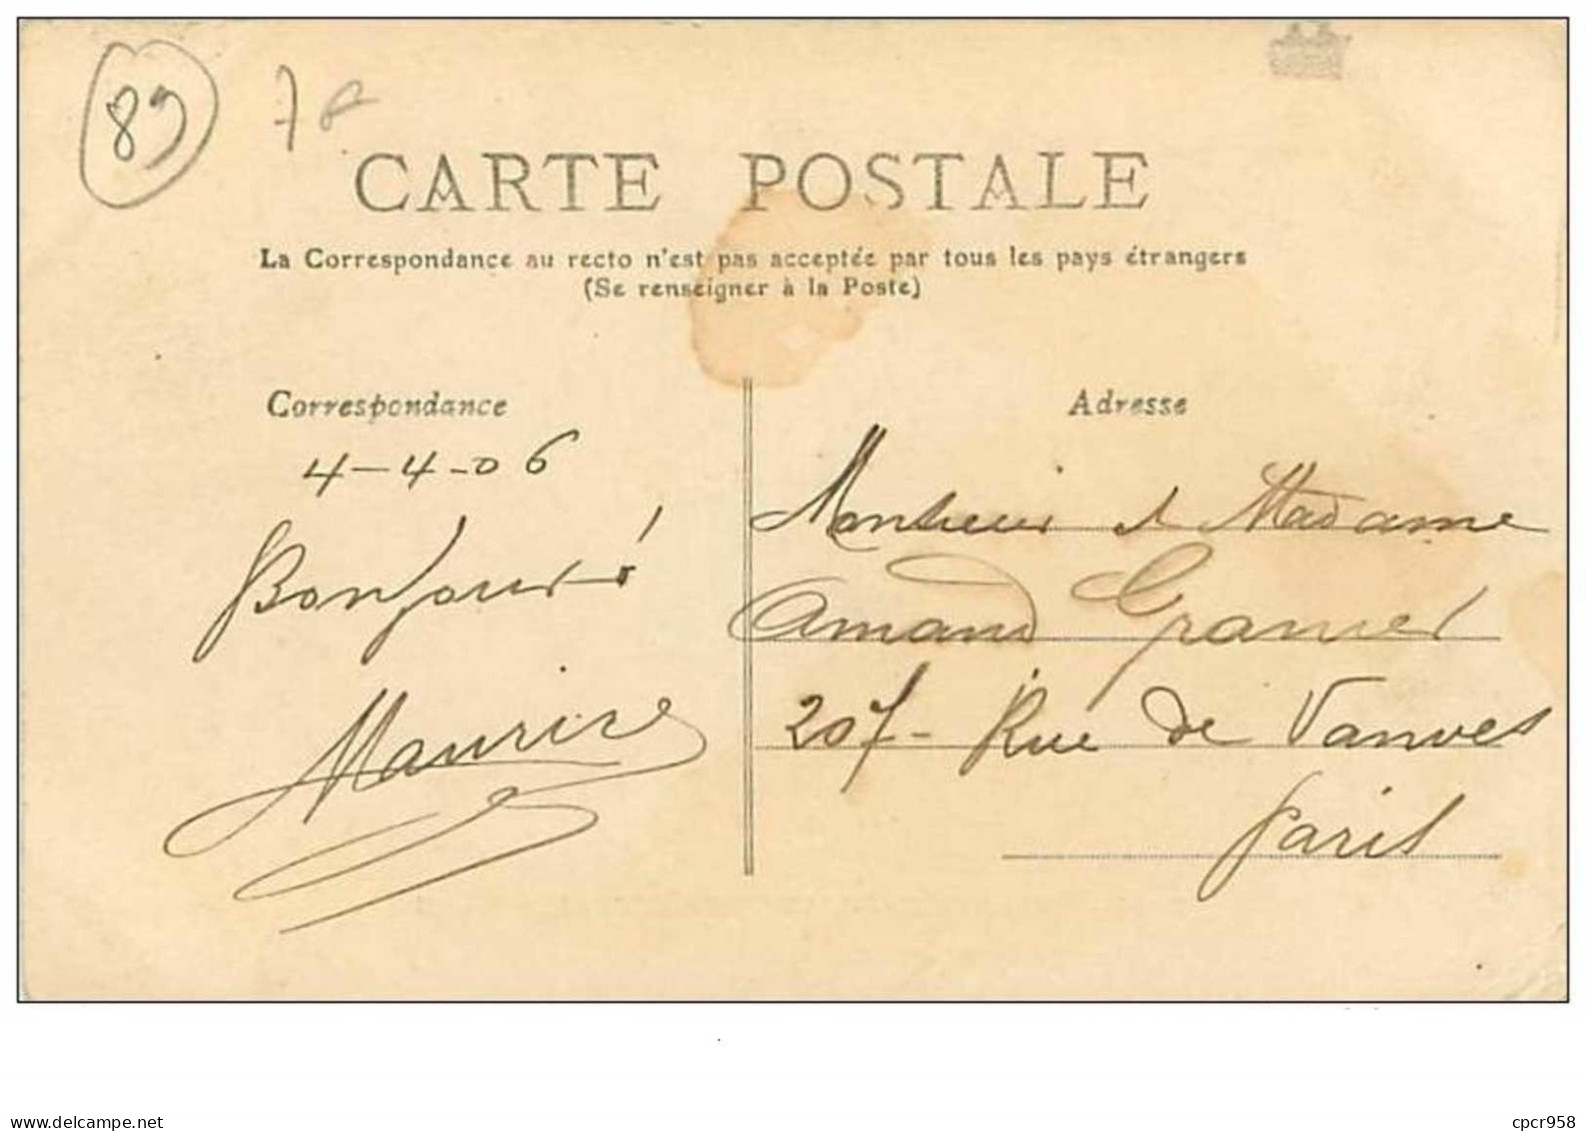 89
CARTE POSTALE
La Correspondance au recto n'est pas acceptée par tous les pays étrangers
(Se renseigner à la Poste)
Correspondance
4-4-06
Maurice
Adresse
Monsieur et Madame
Amand
207- Rue de Vanves
Paris
www.delcampe.net
cpcr958